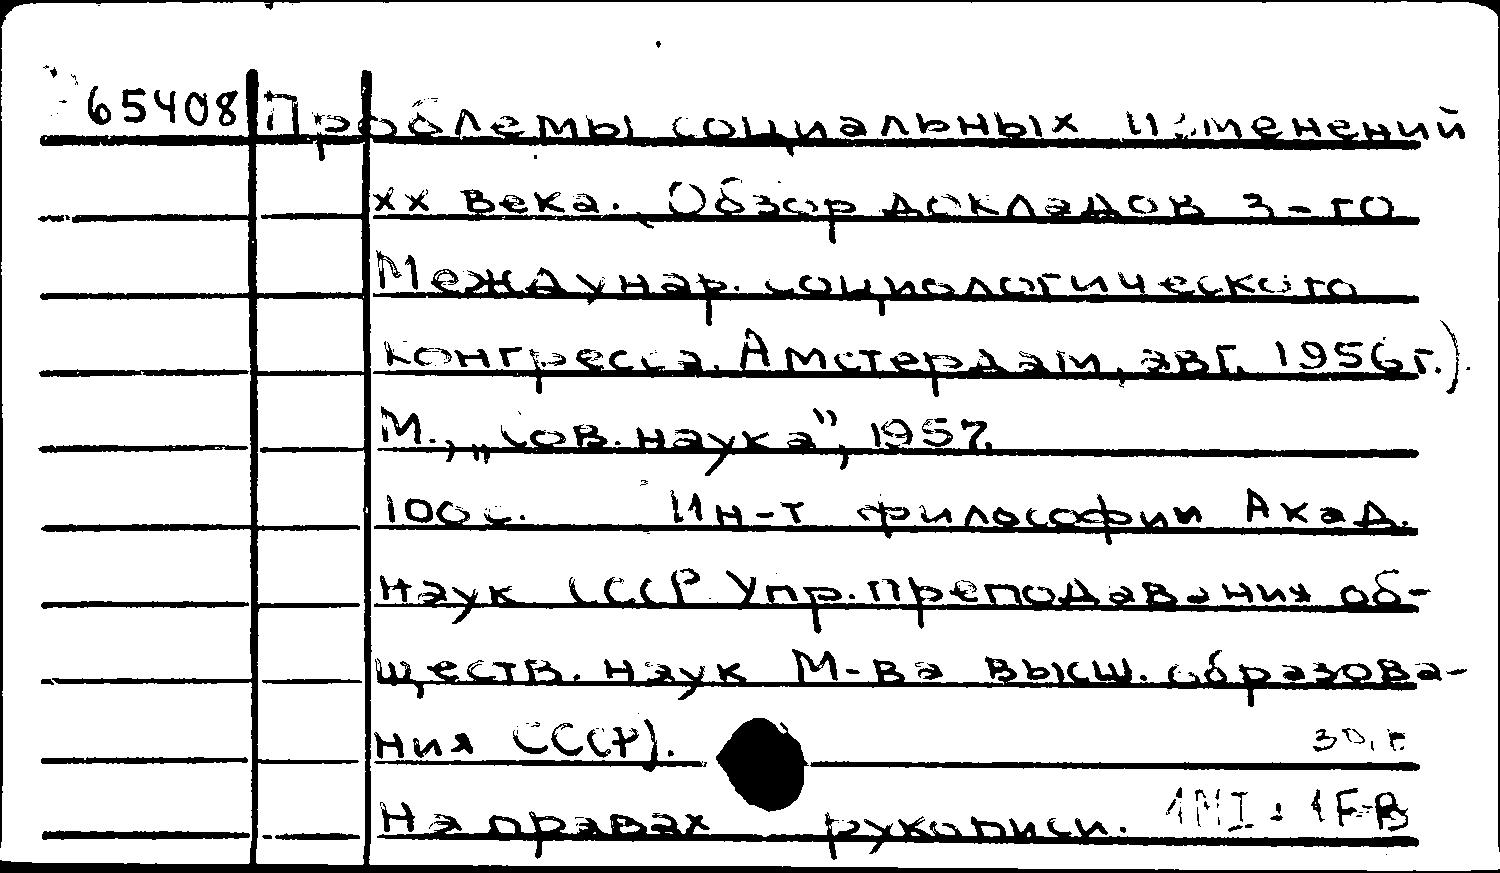 65408 Проблемы социальных изменений
xx века. Обзор докладов 3-го
Междунар. социологического
конгресса. Амстердам, авг. 1956г.)
М., „Сов. наука”, 1957.
100 с. Ин-т философии Акад.
наук СССР Упр. преподавания об-
ществ. наук М-ва высш. образова-
ния СССР).
На правах рукописи. 1МI : 1F-B